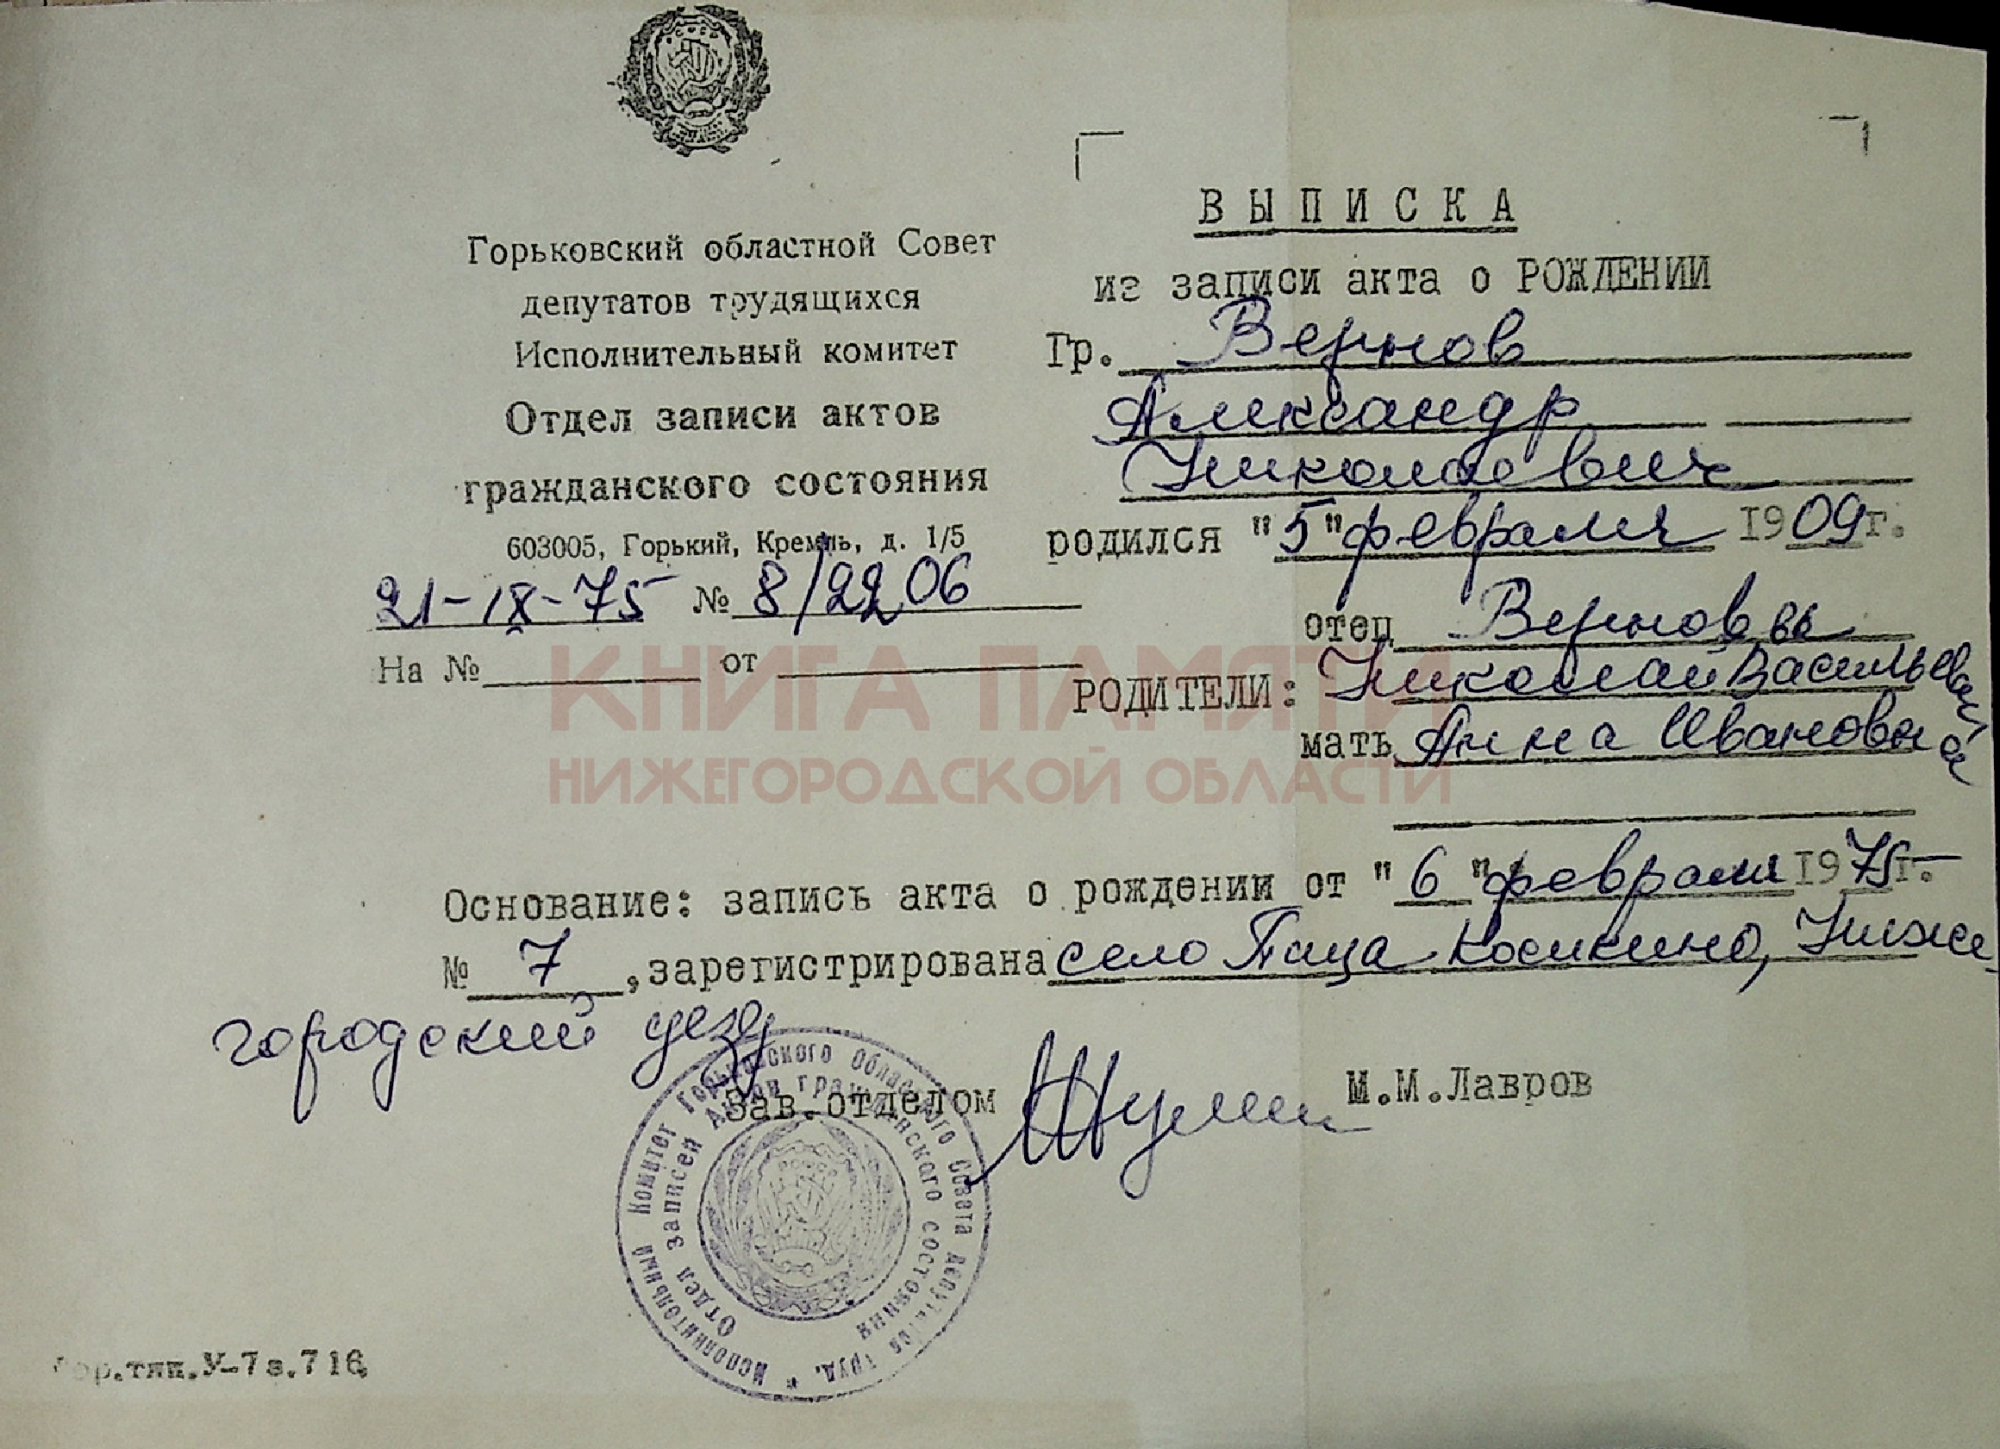 Горьковский областной Совет
депутатов трудящихся
Исполнительный комитет
Отдел записи актов
гражданского состояния
603005, Горький, Кремль, д. 1/5
21-IX-75 № 8/2206
На № от
ВЫПИСКА
из записи акта о РОЖДЕНИИ
Гр. Вернов
Александр
Николаевич
родился "5" февраля 1909 г.
РОДИТЕЛИ:
отец Верновы
Николай Васильевич
мать Анна Ивановна
Основание: запись акта о рождении от "6" февраля 1975 г.
№ 7, зарегистрирована село Косикино, Ниже-
городский уезд
Зав.отделом М.М.Лавров
Исполнительный Комитет Горьковского Областного Совета депутатов труд. *
Отдел записей Актов гражданского состояния
КНИГА ПАМЯТИ
НИЖЕГОРОДСКОЙ ОБЛАСТИ